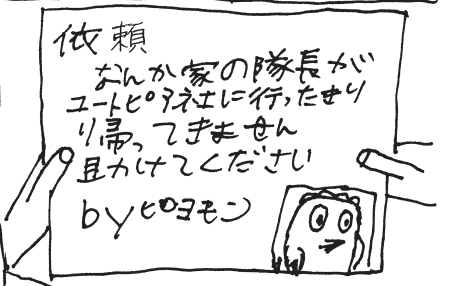 依頼
なんか家の隊長が
ユートピア社に行ったきり
り帰ってきません
助けてください
byピヨモン